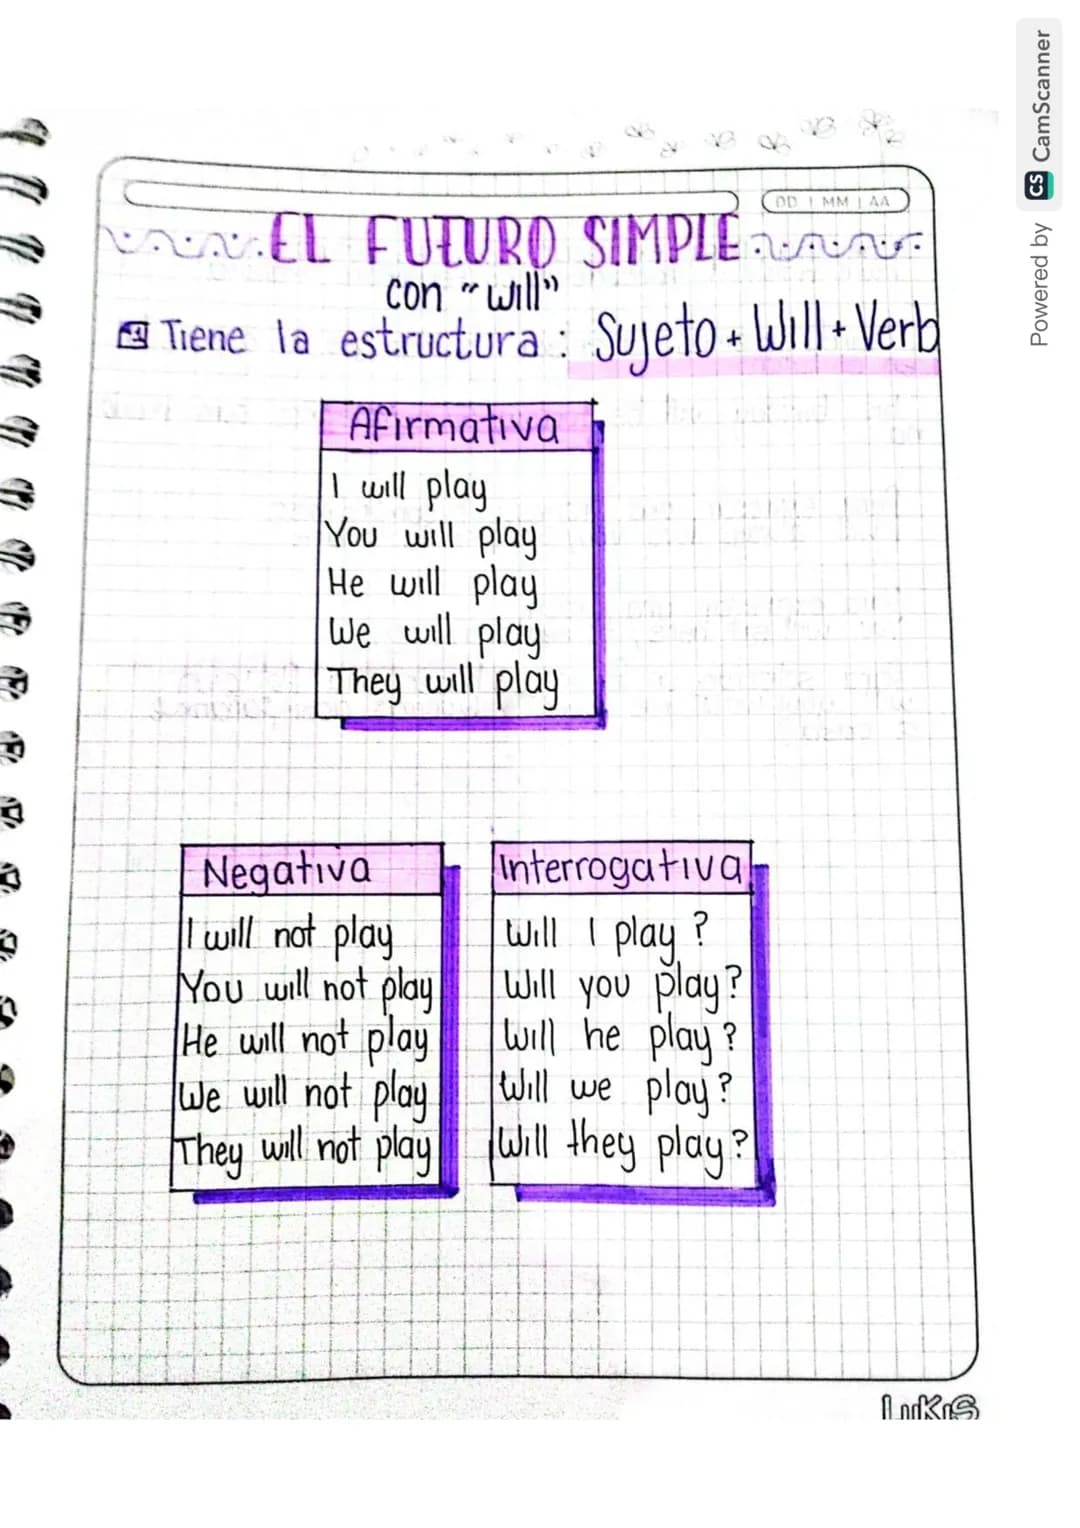 DD | MM | AA
EL FUTURO SIMPLE
con "will"
Tiene la estructura : Sujeto + Will + Verb
Afirmativa
I will play
You will play
He will play
We will play
They will play
Negativa
I will not play
You will not play
He will not play
We will not play
They will not play
Interrogativa
Will I play ?
Will you play?
Will he play ?
Will we play ?
Will they play?
Powered by CS CamScanner